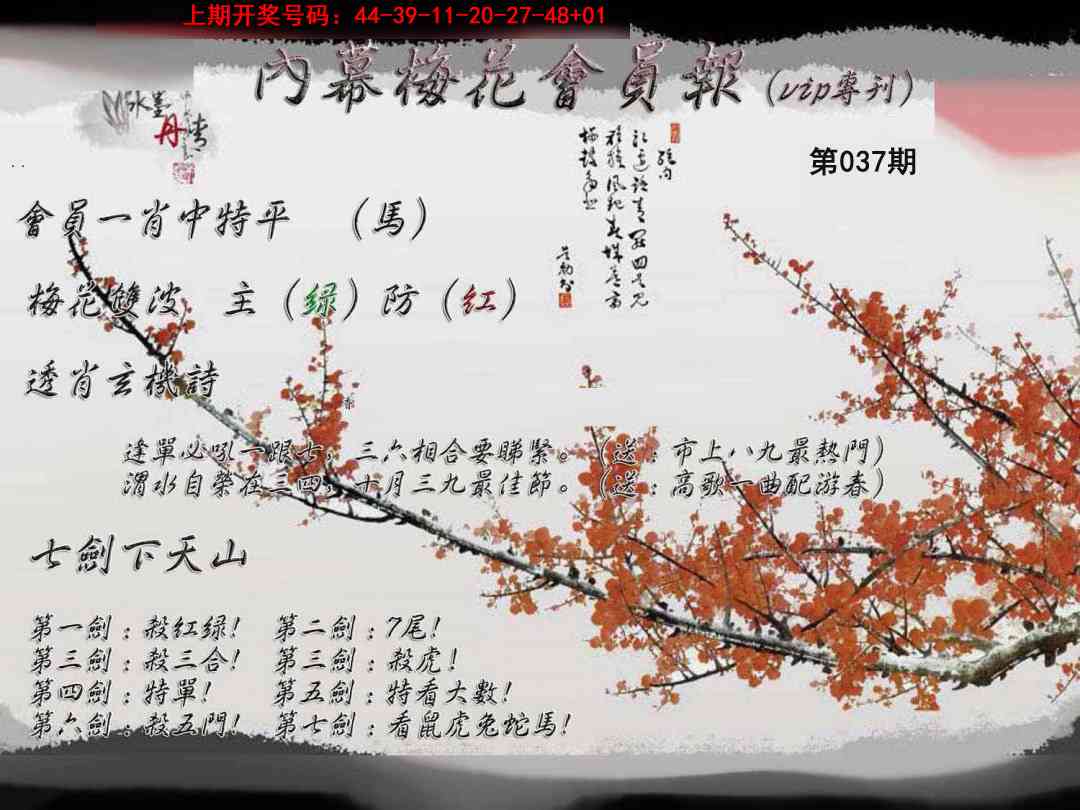 上期开奖号码：44-39-11-20-27-48+01
內幕梅花會員報(vip專刊)
水墨
丹青
第037期
會員一肖中特平 （馬）
梅花雙波 主（绿）防（红）
透肖玄機詩
逢單必吼一跟七，三六相合要睇緊。（送：市上八九最熱門）
渭水自榮在三四，十月三九最佳節。（送：高歌一曲配游春）
七劍下天山
第一劍：殺红绿! 第二劍：7尾!
第三劍：殺三合! 第三劍：殺虎!
第四劍：特單! 第五劍：特看大數!
第六劍：殺五門! 第七劍：看鼠虎兔蛇馬!